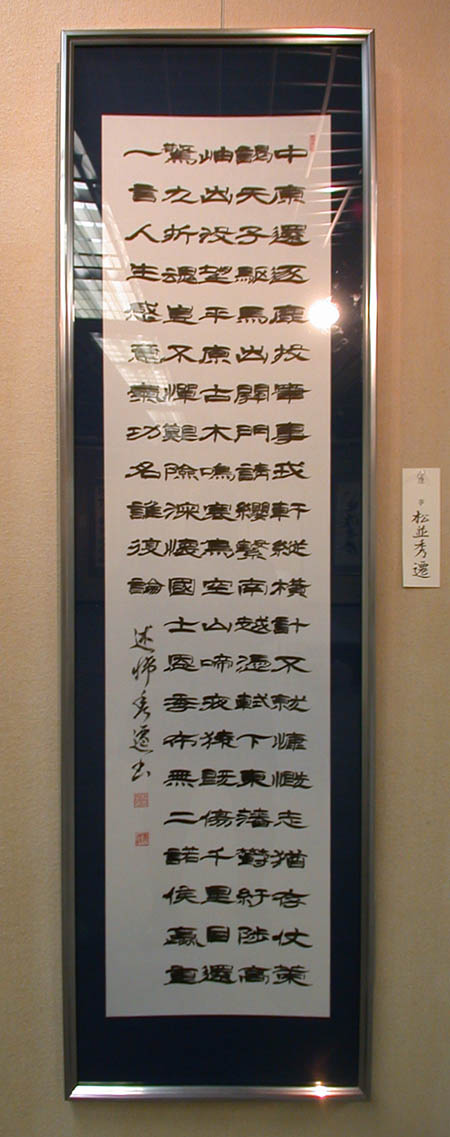 中原還逐鹿投筆事戎軒縱橫計不就慷慨志猶存仗策
謁天子駆馬出關門請纓繫南越憑軾下東藩鬱紆陟高
岫出没望平原古木鳴寒鳥空山啼夜猿既傷千里目還
驚九折魂豈不憚艱險深懷國士恩季布無二諾侯嬴重
一言人生感意氣功名誰復論
述懐秀遷書
松並秀遷